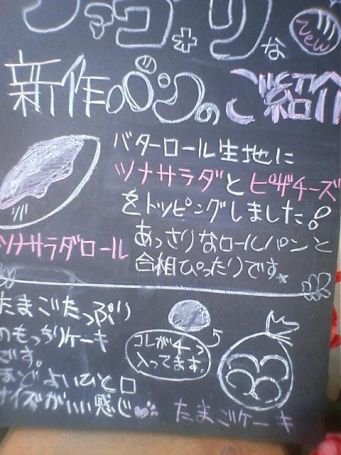 new
新作のパンのご紹介
バターロール生地に
ツナサラダとピザチーズ
をトッピングしました!
ツナサラダロール
あっさりなロールパンと
合相ぴったりです。
たまごたっぷり
のもっちりケーキ
です。
ほどよいひと口
サイズがいい感じ
コレが4つ
入ってます。
たまごケーキ